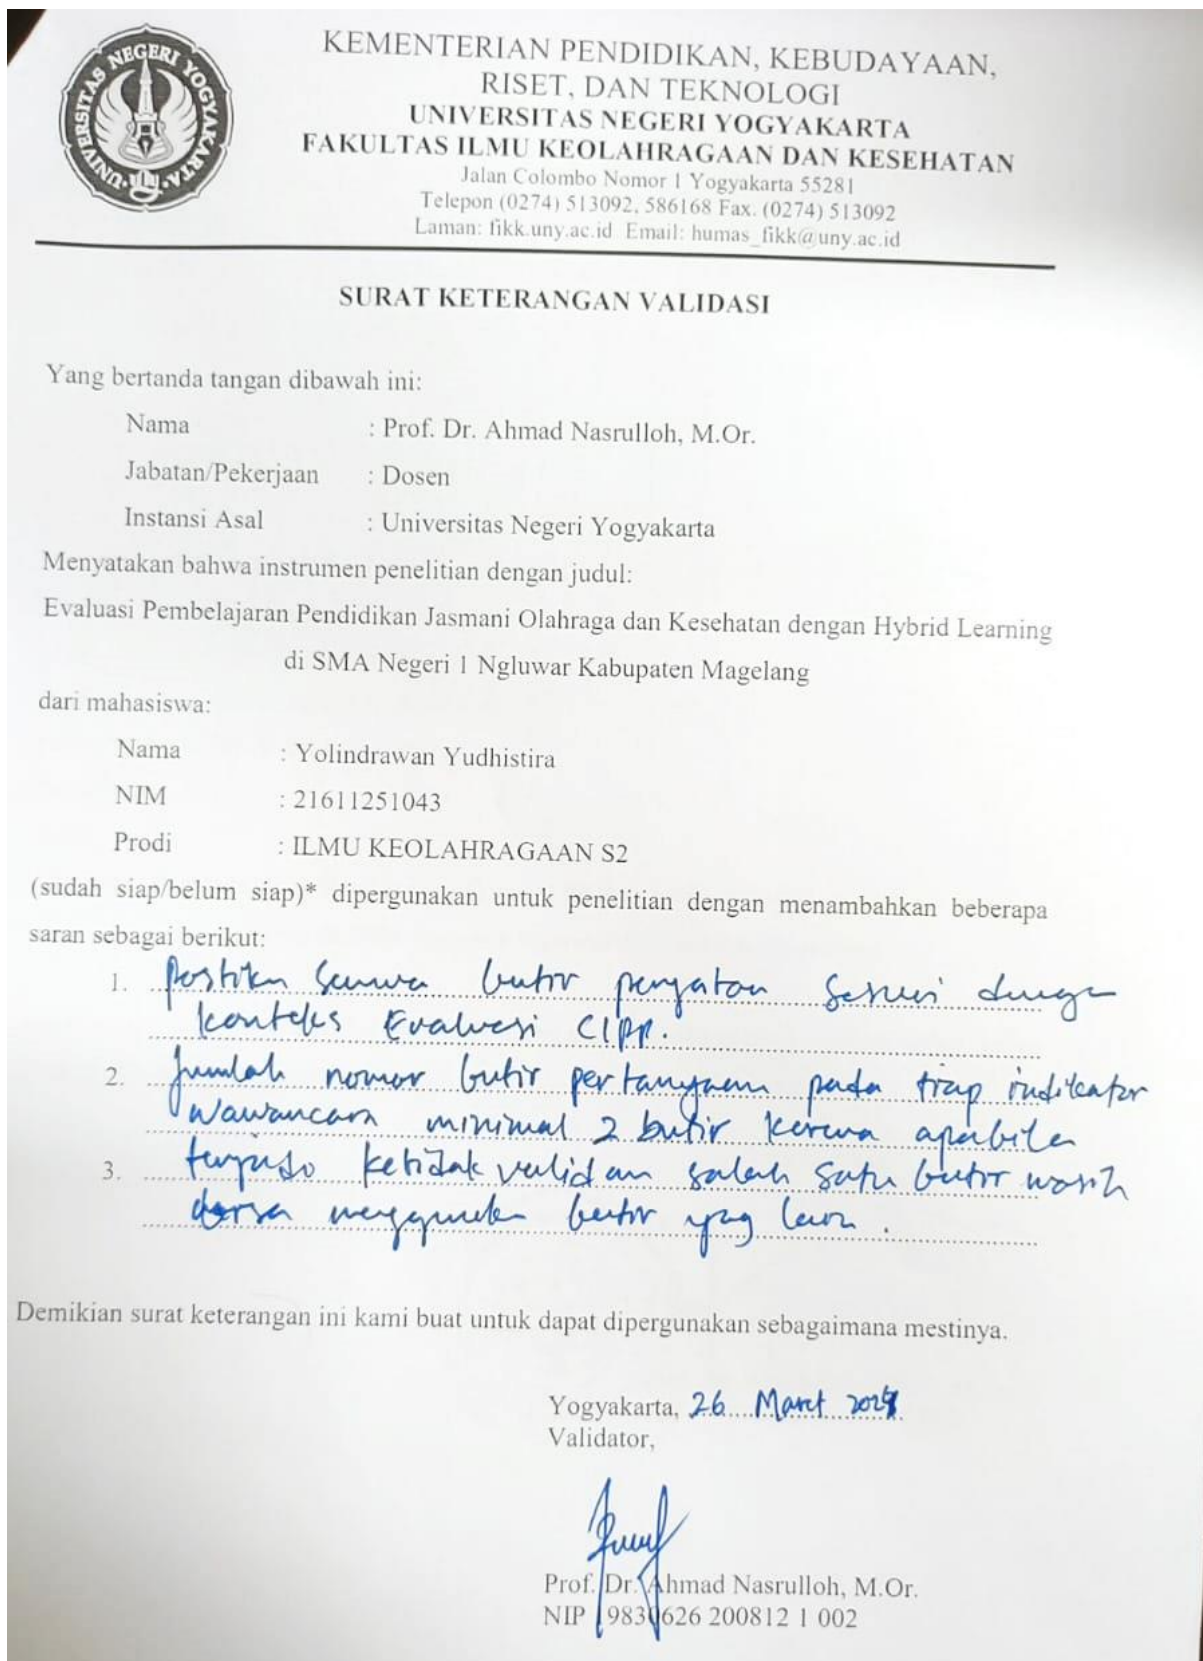 UNIVERSITAS NEGERI YOGYAKARTA
KEMENTERIAN PENDIDIKAN, KEBUDAYAAN,
RISET, DAN TEKNOLOGI
UNIVERSITAS NEGERI YOGYAKARTA
FAKULTAS ILMU KEOLAHRAGAAN DAN KESEHATAN
Jalan Colombo Nomor 1 Yogyakarta 55281
Telepon (0274) 513092, 586168 Fax. (0274) 513092
Laman: fikk.uny.ac.id Email: humas_fikk@uny.ac.id
SURAT KETERANGAN VALIDASI
Yang bertanda tangan dibawah ini:
Nama : Prof. Dr. Ahmad Nasrulloh, M.Or.
Jabatan/Pekerjaan : Dosen
Instansi Asal : Universitas Negeri Yogyakarta
Menyatakan bahwa instrumen penelitian dengan judul:
Evaluasi Pembelajaran Pendidikan Jasmani Olahraga dan Kesehatan dengan Hybrid Learning
di SMA Negeri 1 Ngluwar Kabupaten Magelang
dari mahasiswa:
Nama : Yolindrawan Yudhistira
NIM : 21611251043
Prodi : ILMU KEOLAHRAGAAN S2
(sudah siap/belum siap)* dipergunakan untuk penelitian dengan menambahkan beberapa
saran sebagai berikut:
1. Pastikan semua butir pernyataan sesuai dengan
konteks Evaluasi CIPP.
2. Jumlah nomor butir pertanyaan pada tiap indikator
wawancara minimal 2 butir karena apabila
3. ketidak validan salah satu butir masih
menggunakan butir yang lain.
Demikian surat keterangan ini kami buat untuk dapat dipergunakan sebagaimana mestinya.
Yogyakarta, 26 Maret 2024
Validator,
Prof. Dr. Ahmad Nasrulloh, M.Or.
NIP 19830626 200812 1 002